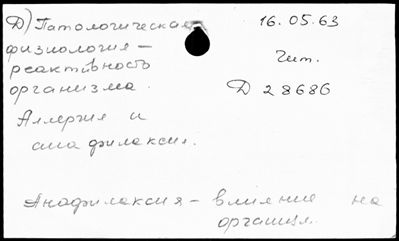 Д) Патологическая
физиология –
реактивность
организма.
16.05.63
Чит.
Д 28686
Аллергия и
анафилаксия.
Анафилаксия – влияние на
организм.